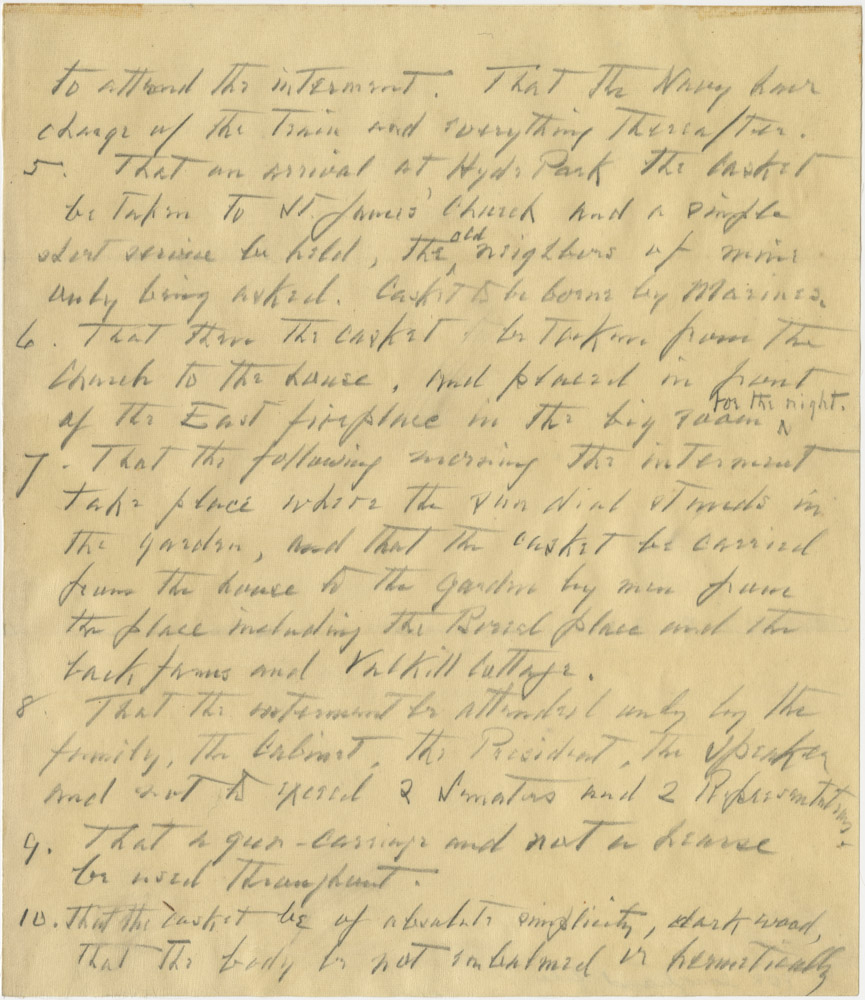 to attend the interment. That the Navy have
charge of the train and everything thereafter.
5. That on arrival at Hyde Park the casket
be taken to St. James' Church and a simple
short service be held, the old neighbors of mine
only being asked. Casket to be borne by Marines.
6. That then the casket be taken from the
Church to the house, and placed in front
of the East fireplace in the big room for the night.
7. That the following morning the interment
take place where the sun dial stands in
the garden, and that the casket be carried
from the house to the garden by men from
the place including the Boreel place and the
back farms and Valkill Cottage.
8 That the interment be attended only by the
family, the Cabinet, the President, the Speaker
and not to exceed 2 Senators and 2 Representatives.
9. That a gun-carriage and not a hearse
be used throughout.
10. That the casket be of absolute simplicity, dark wood,
that the body be not embalmed or hermetically